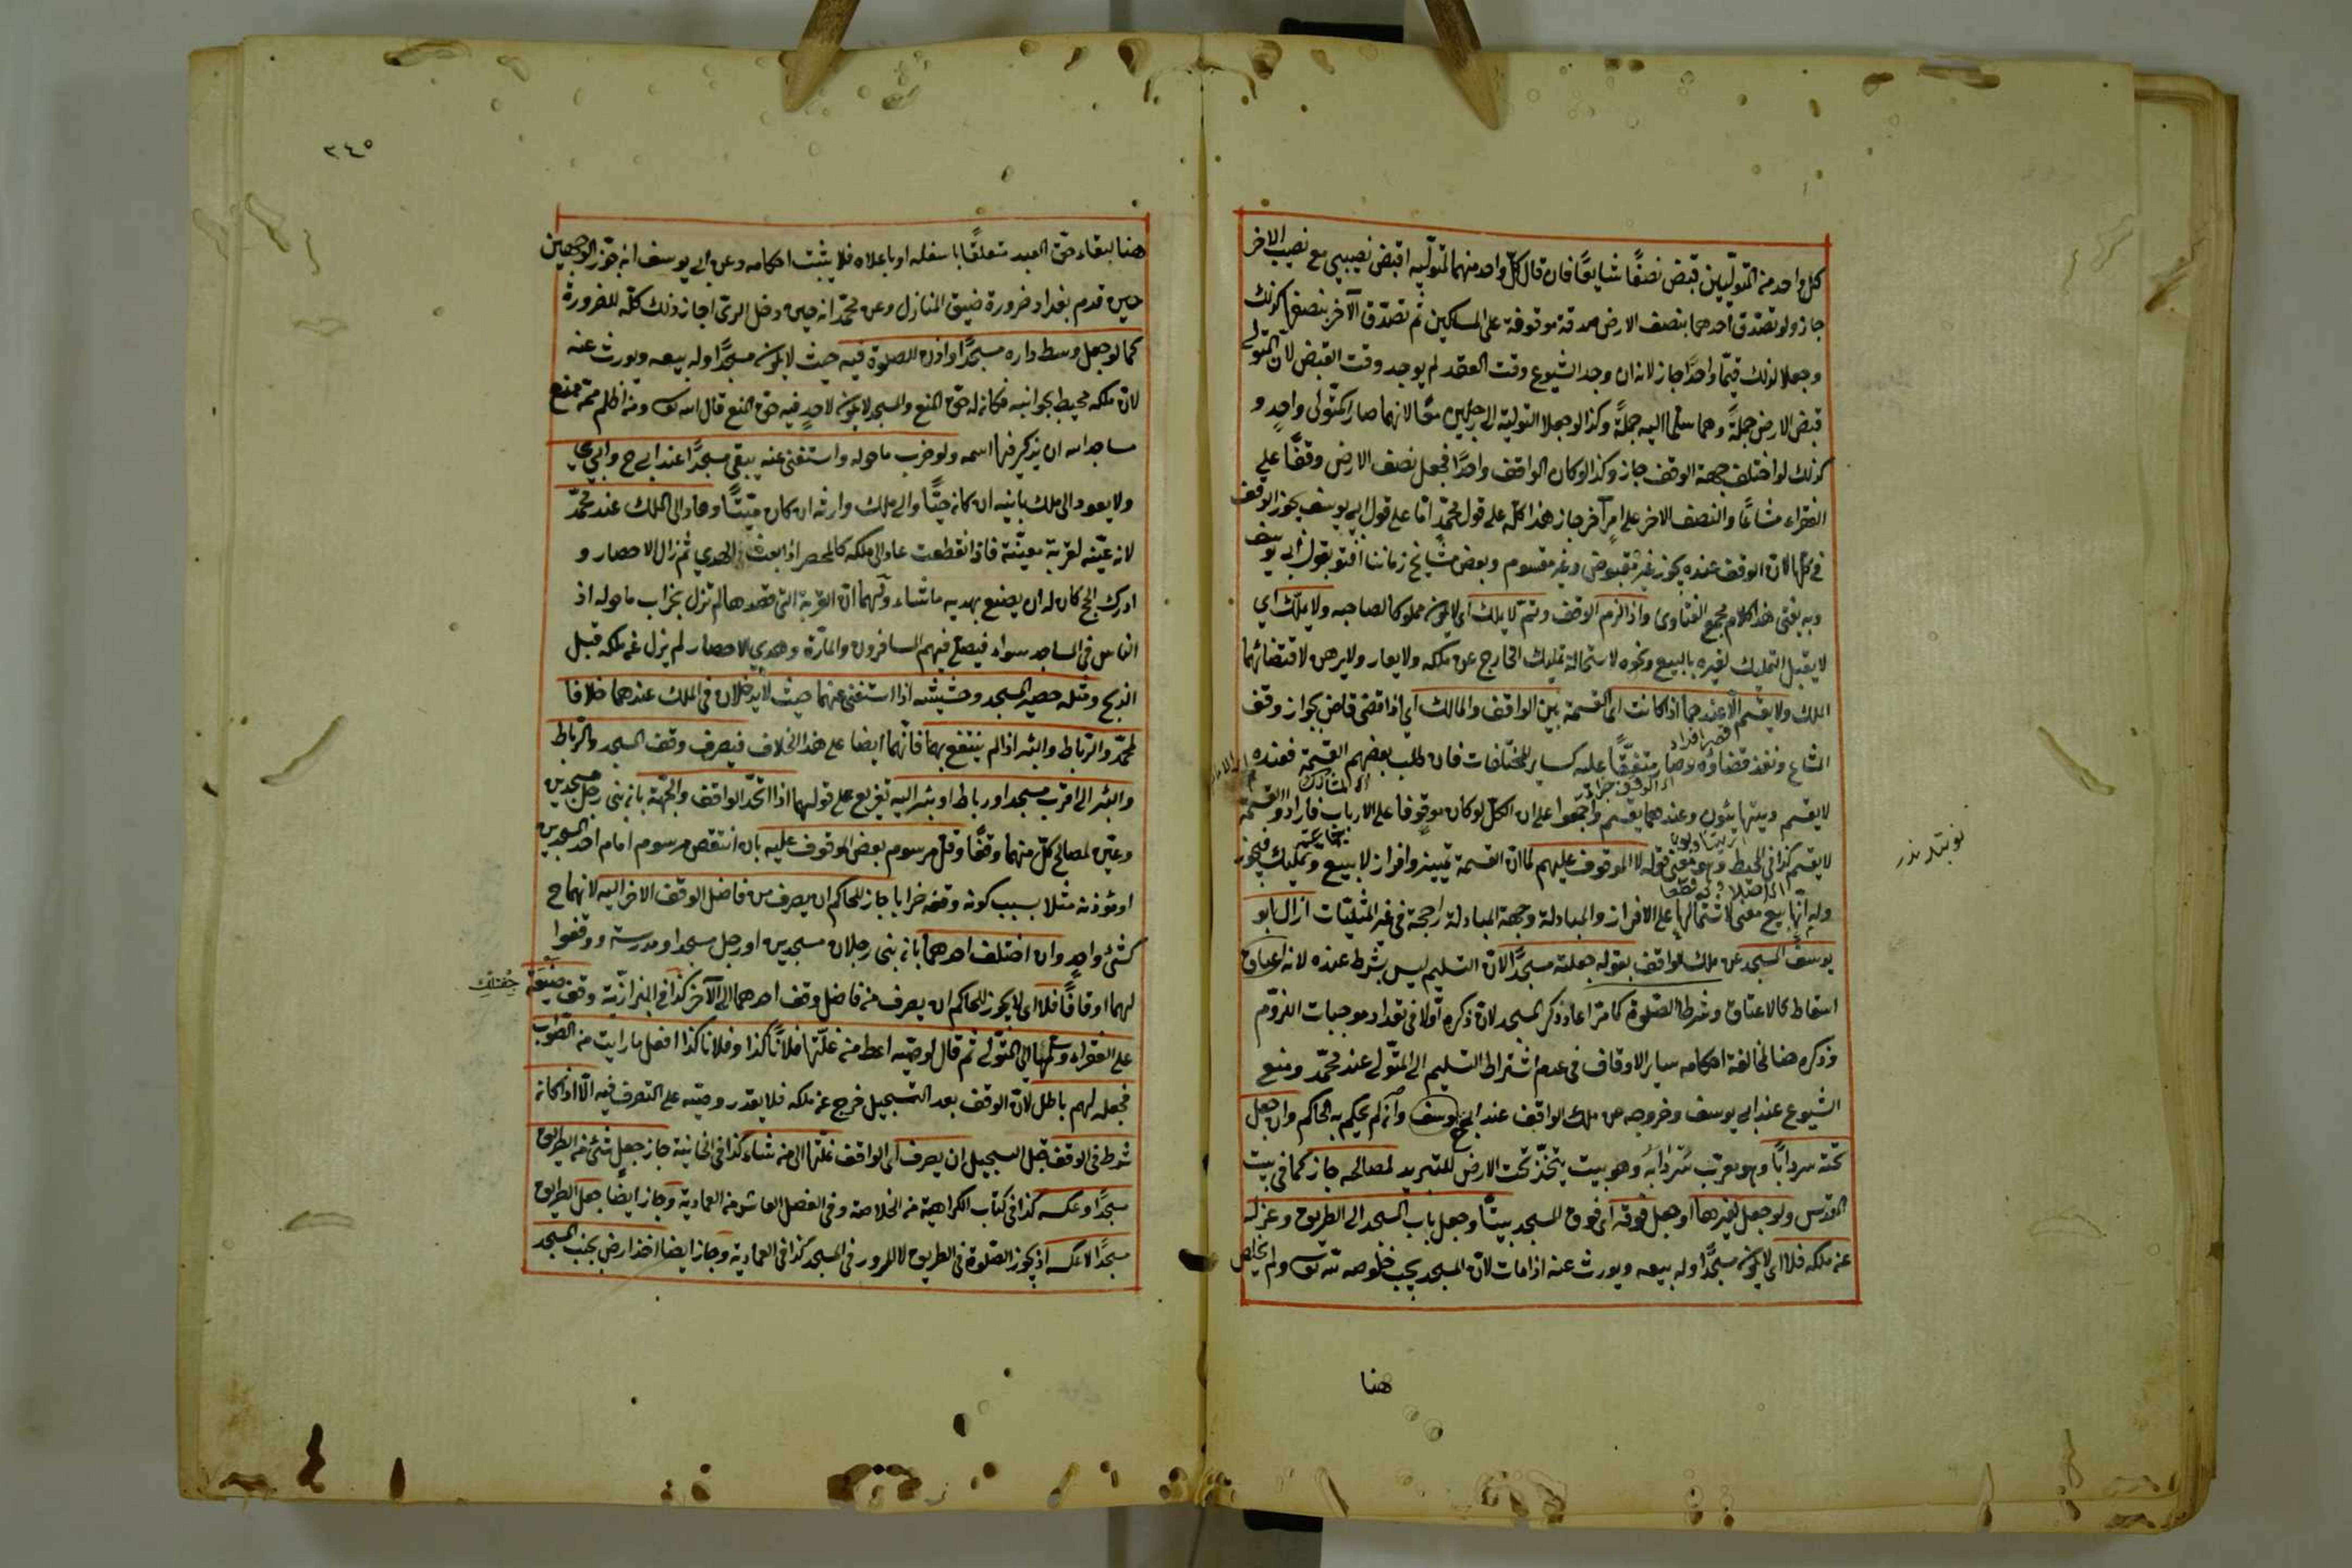 كل واحد من المتوليين قبض نصفًا شايعًا فان قال كل واحد منهما لمتوليه اقبض نصيبي مع نصيب الاخر
جاز ولو تصدق أحدهما بنصف الارض صدقة موقوفة على المساكين ثم تصدق الآخر بنصفها كذلك
وجعلا لذلك قيمًا واحدًا جاز لانه ان وجد الشيوع وقت العقد لم يوجد وقت القبض لان المتولى
قبض الارض جملةً وهما سلما اليه جملةً وكذا لو جعلا التولية الى رجلين معًا لانهما صارا كمتولى واحدٍ و
كذلك لو اختلف جهة الوقف جاز وكذا لو كان الواقف واحدًا فجعل نصف الارض وقفًا على
الفقراء مشاعًا والنصف الاخر على امرٍ آخر جاز هذا كله على قول محمدٍ اما على قول ابي يوسف يجوز الوقف
في كلها لان الوقف عنده يجوز غير مقبوض وغير مقسوم وبعض مشايخ زماننا افتوا بقول ابي يوسف
وبه يفتى هذا كلام مجمع الفتاوى واذا لزم الوقف وتم لا يملك اى لا يكون مملوكا لصاحبه ولا يملك اي
لا يقبل التمليك لغيره بالبيع ونحوه لاستحالة تمليك الخارج عن ملكه ولا يعار ولا يرهن لاقتضائهما
الملك ولا يقسم الا عندهما اذا كانت اى القسمة بين الواقف والمالك اي اذا قضى قاض بجواز وقف
المشاع ونفذ قضاؤه وصار متفقًا عليه كساير المختلفات فان طلب بعضهم القسمة فعنده
لا يقسم ويتهايئون وعندهما يقسم واجمعوا على ان الكل لو كان موقوفا على الارباب فارادوا القسمة
لا يقسم كذا في المحيط وهو معنى قوله لا الموقوف عليهم لما ان القسمة تمييز وافراز لا بيع وتمليك فيجوز
وله انها بيع معنى لاشتمالها على الافراز والمبادلة وجهة المبادلة راجحة في غير المثليات ازال ابو
يوسف المسجد عن ملك الواقف بقوله جعلته مسجدًا لان التسليم ليس بشرط عنده لانه
اسقاط كالاعتاق وشرطا الصلوة كما مر اعاد ذكر المسجد لان ذكره اولا في تعداد موجبات اللزوم
وذكره هنا لمخالفة احكامه ساير الاوقاف في عدم اشتراط التسليم الى المتولى عند محمد ومنع
الشيوع عند ابى يوسف وخروجه عن ملك الواقف عند ابي ح يوسف وان لم يحكم به الحاكم وان جعل
تحته سردابًا وهو معرب سردابه وهو بيت يتخذ تحت الارض للتبريد لمصالحه جاز كما في بيت
المقدس ولو جعل لغيرها او جعل فوقه اى فوق المسجد بيتًا وجعل باب المسجد الى الطريق وعزله
عن ملكه فلا اى لا يكون مسجدًا وله بيعه ويورث عنه اذا مات لان المسجد يجب خلوصه لله تع ولم يخلص
هنا
٣٤٥
هنا لبقاء حق العبد متعلقًا باسفله او باعلاه فلا يثبت احكامه وعن ابي يوسف انه جوز الوجهين
حين قدم بغداد ضرورة ضيق المنازل وعن محمد انه حين دخل الرى اجاز ذلك كله للضرورة
كما لو جعل وسط داره مسجدًا واذن للصلوة فيه حيث لا يكون مسجدًا وله بيعه ويورث عنه
لان ملكه محيط بجوانبه فكان له حق المنع والمسجد لا يكون لاحدٍ فيه حق المنع قال الله تع ومن اظلم ممن منع
مساجد الله ان يذكر فيها اسمه ولو خرب ما حوله واستغنى عنه يبقى مسجدًا عند ابي ح وابي ي
ولا يعود الى ملك بانيه ان كان حيًا والى ملك وارثه ان كان ميتًا وعاد الى الملك عند محمد
لانه عينه لقربة معينة فاذا انقطعت عاد الى ملكه كالمحصر اذا بعث الهدي ثم زال الاحصار و
ادرك الحج كان له ان يصنع بهديه ما شاء ولهما ان القربة التى قصدها لم تزل بخراب ما حوله اذ
الناس في المساجد سواء فيصلى فيهم المسافرون والمارة وهدي الاحصار لم يزل عن ملكه قبل
الذبح ومثله حصير المسجد وحشيشه اذا استغنى عنهما حيث لا يدخلان في الملك عندهما خلافا
لمحمد والرباط والبئر اذا لم ينتفع بهما فانهما ايضا على هذا الخلاف فيصرف وقف المسجد والرباط
والبئر الى اقرب مسجد او رباط او بئر اليه تفريع على قولهما اذا اتحد الواقف والجهة بان بنى رجل مسجدين
وعين لمصالح كل منهما وقفًا وقل مرسوم بعض الموقوف عليه بان انتقص مرسوم امام احد المسجدين
او مؤذنه مثلا بسبب كون وقفه خرابا جاز للحاكم ان يصرف من فاضل الوقف الاخر اليه لانهما ح
كشئ واحدٍ وان اختلف احدهما بان بنى رجلان مسجدين او رجل مسجدا ومدرسة ووقفوا
لهما اوقافًا فلا اى لا يجوز للحاكم ان يصرف من فاضل وقف احدهما الى الآخر كذا في البزازية وقف ضيعة
على الفقراء وسلمها الى المتولى ثم قال لوصيه اعط من غلتها فلانًا كذا وفلانا كذا افعل ما رايت من الصواب
فجعله لهم باطل لان الوقف بعد التسجيل خرج عن ملكه فلا يقدر وصيه على التصرف فيه الا اذا كان
شرط في الوقف قبل التسجيل ان يصرف اى الواقف غلتها الى من شاء كذا في الخانية جاز جعل شئ من الطريق
مسجدًا وعكسه كذا في كتاب الكراهية من الخلاصة وفي الفصل العاشر من العمادية وجاز ايضًا جعل الطريق
مسجدًا لا عكسه اذ يجوز الصلوة في الطريق لا المرور في المسجد كذا في العمادية وجاز ايضا اخذ ارض بجنب المسجد